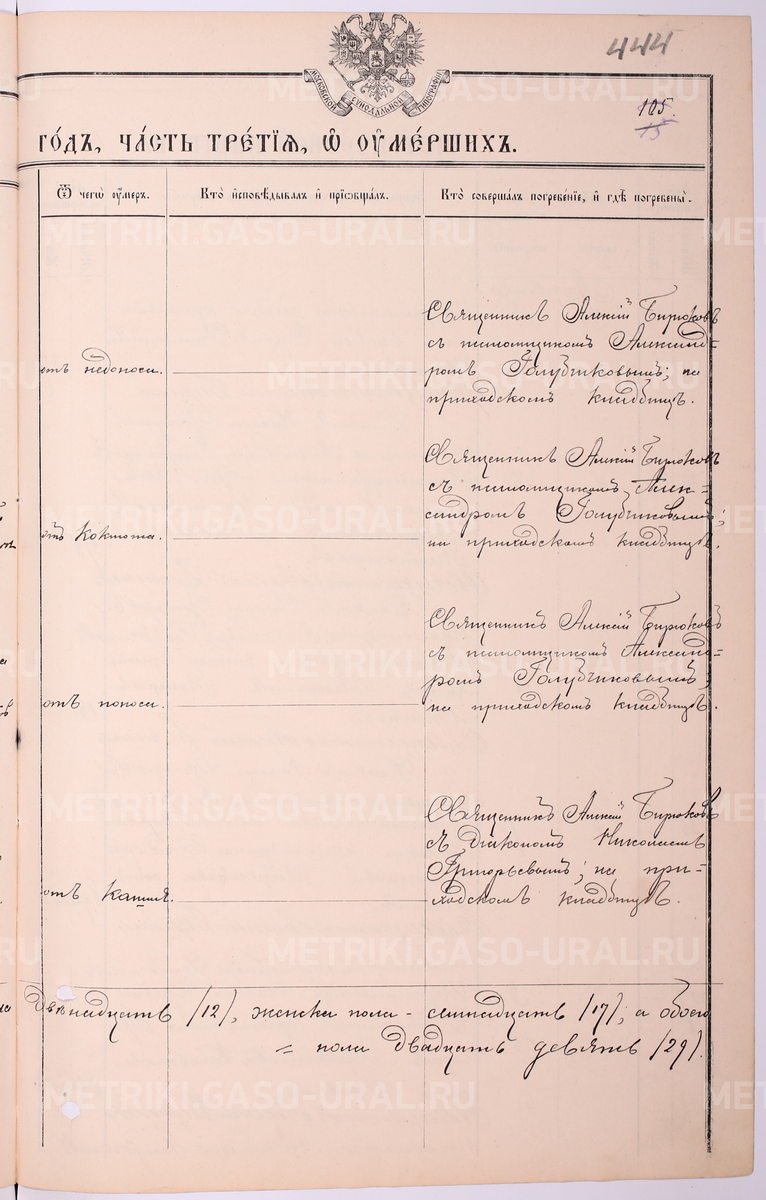 444
МОСКОВСКОЙ СѴНОДАЛЬНОЙ ТИПОГРАФІИ
105.
15
ГО́ДЪ, ЧА́СТЬ ТРЕ́ТІѦ, Ѡ҆ ОУ҆МЕ́РШИХЪ.
Ѿ чегѡ̀ оу҆́мер.
Кто̀ и҆сповѣ́дывалъ и҆ прїѡбща́лъ.
Кто̀ соверша́лъ погребе́нїе, и҆ гдѣ̀ погребены̀.
Священникъ Алексій Бирюковъ
съ псаломщикомъ Александ-
отъ недоноса.
ромъ Голубчиковымъ; на
приходскомъ кладбищѣ.
Священникъ Алексій Бирюковъ
съ псаломщикомъ Алек-
сандромъ Голубчиковымъ;
отъ коклюша.
на приходскомъ кладбищѣ.
Священникъ Алексій Бирюковъ
съ псаломщикомъ Александ-
ромъ Голубчиковымъ;
отъ поноса.
на приходскомъ кладбищѣ.
Священникъ Алексій Бирюковъ
съ Діакономъ Николаемъ
Григорьевымъ; на при-
отъ кашля.
ходскомъ кладбищѣ.
Двѣнадцать /12/, женска пола - семнадцать /17/; а обоего
= пола двадцать девять /29/.
METRIKI.GASO-URAL.RU